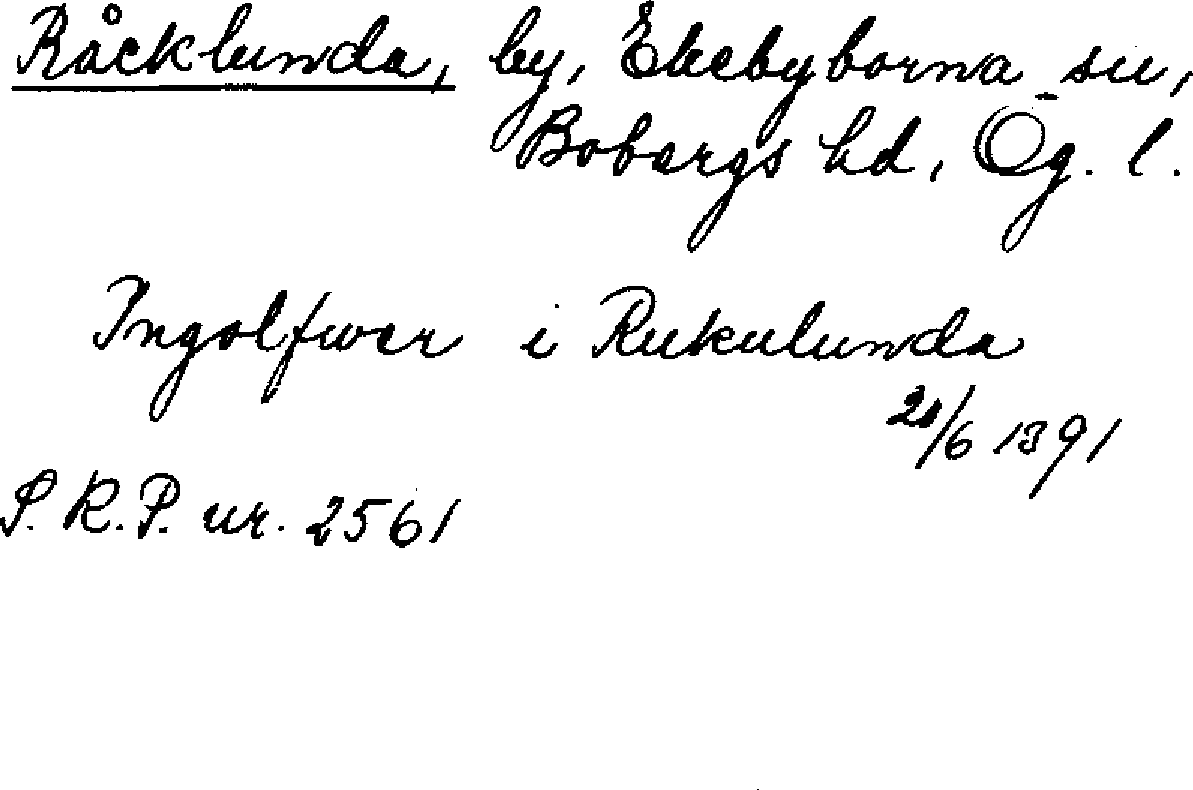 Råcklunda, by, Ekebyborna sn,
Bobergs hd, Ög. l.
Ingolfwer i Rukulunda
/6 1391
S. R. P. nr. 2561